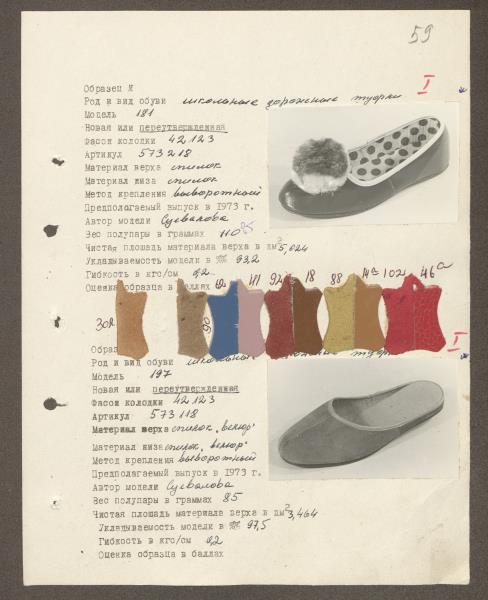 59
I
Образец №
Род и вид обуви школьные дорожные туфли
Модель 181
Новая или переутвержденная
Фасон колодки 42123
Артикул 573218
Материал верха спилок
Материал низа спилок
Метод крепления выворотный
Предполагаемый выпуск в 1973 г.
Автор модели Суевалова
Вес полупары в граммах 110 85
Чистая площадь материала верха в дм² 5,024
Укладываемость модели в % 93,2
Гибкость в кгс/см 0,2
Оценка образца в баллах
30а 90 181 92 18 88 14а 102 46а
I
Образ
Род и вид обуви школьные туфли
Модель 197
Новая или переутвержденная
Фасон колодки 42123
Артикул 573118
Материал верха спилок, велюр
Материал низа спилок, велюр
Метод крепления выворотный
Предполагаемый выпуск в 1973 г.
Автор модели Суевалова
Вес полупары в граммах 85
Чистая площадь материала верха в дм² 3,464
Укладываемость модели в % 97,5
Гибкость в кгс/см 0,2
Оценка образца в баллах